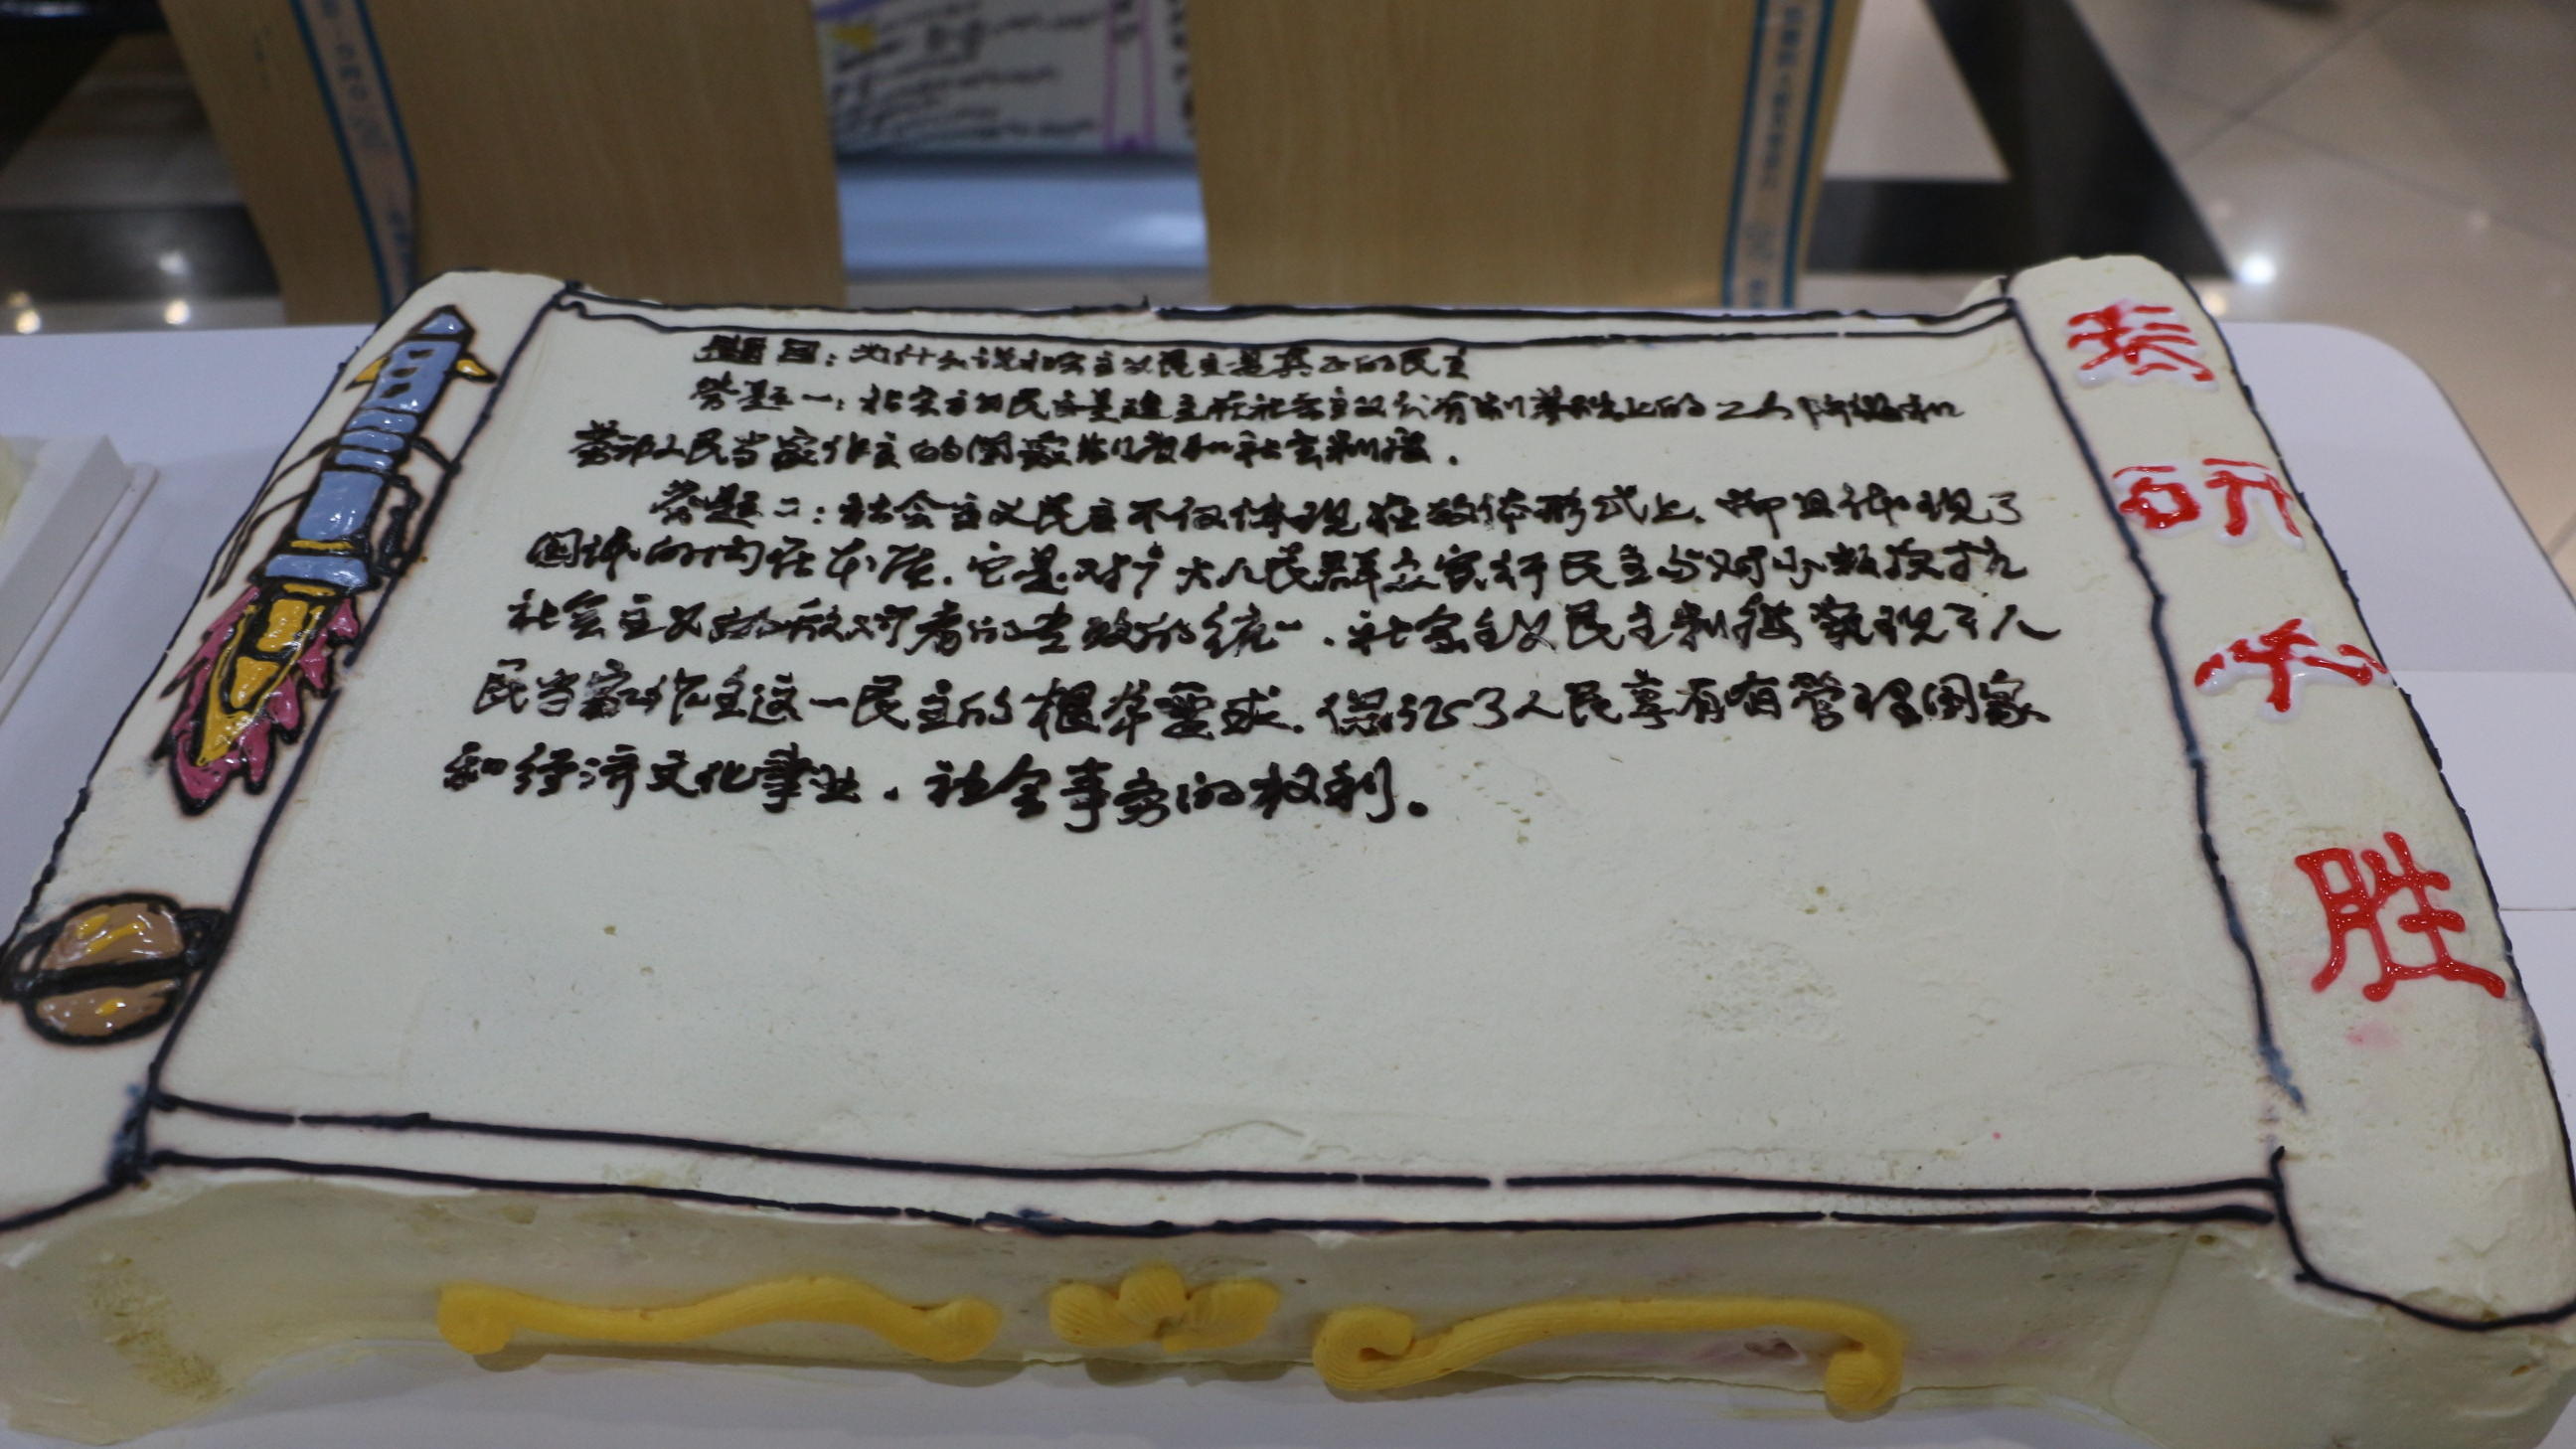 题目：为什么说社会主义民主是真正的民主
答题一：社会主义民主是建立在社会主义公有制基础上的工人阶级和
劳动人民当家作主的国家制度和社会制度．
答题二：社会主义民主不仅体现在政体形式上，而且体现了
国体的内在本质，它是对广大人民群众实行民主与对少数反抗
社会主义的敌对者的专政的统一．社会主义民主制度实现了人
民当家作主这一民主的根本要求，保证了人民享有有管理国家
和经济文化事业，社会事务的权利。
研
胜